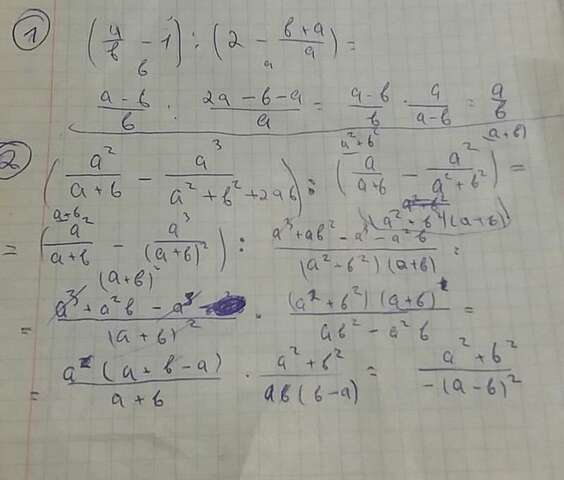 ① (a/b - 1) : (2 - b+a/a) =
a-b/b : 2a-b-a/a = a-b/b · a/a-b = a/b
② (a²/a+b - a³/a²+b²+2ab) : (a/a+b - a²/a²+b²) =
= (a²/a+b - a³/(a+b)²) : a³+ab²-a³-a²b/(a²+b²)(a+b) =
= a³+a²b-a³/(a+b)² · (a²+b²)(a+b)/ab²-a²b =
= a²(a+b-a)/a+b · a²+b²/ab(b-a) = a²+b²/-(a-b)²